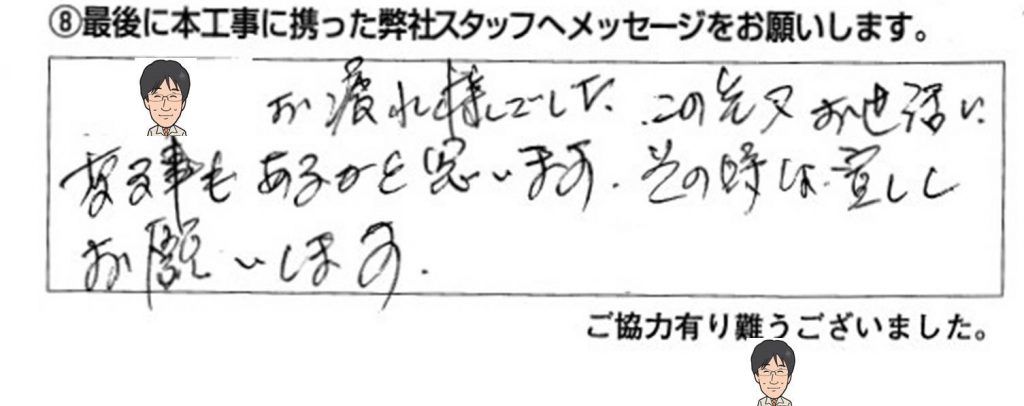 ⑧最後に本工事に携った弊社スタッフへメッセージをお願いします。
お疲れ様でした。この先又お世話に
変る事もあるかと思います。その時は宜しく
お願いします。
ご協力有り難うございました。